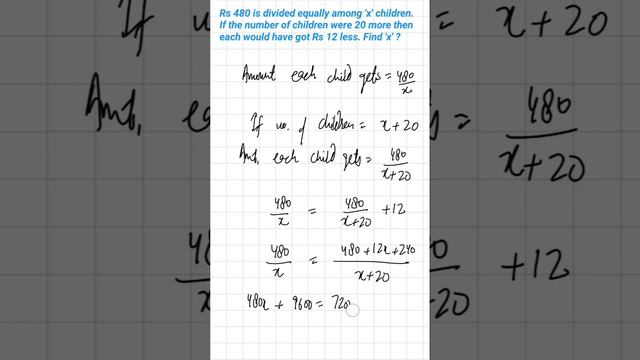 Rs 480 is divided equally among 'x' children.
If the number of children were 20 more then
each would have got Rs 12 less. Find 'x' ?
Amount each child gets = 480/x
If no. of children = x+20
Amt. each child gets = 480/x+20
480/x = 480/x+20 +12
480/x = 480+12x+240/x+20
480x + 9600 = 720